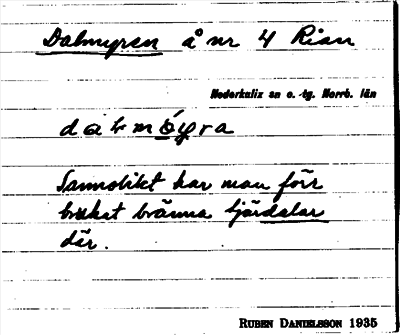 Dalmyren å nr 4 Rian
Nederkalix sn o. tg. Norrb. län
Sannolikt har man förr
brukat bränna tjärdalar
där.
RUBEN DANIELSSON 1935